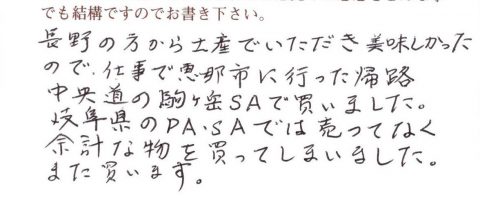 でも結構ですのでお書き下さい。
長野の方から土産でいただき美味しかった
ので、仕事で恵那市に行った帰路
中央道の駒ヶ岳SAで買いました。
岐阜県のPA・SAでは売ってなく
余計な物を買ってしまいました。
また買います。